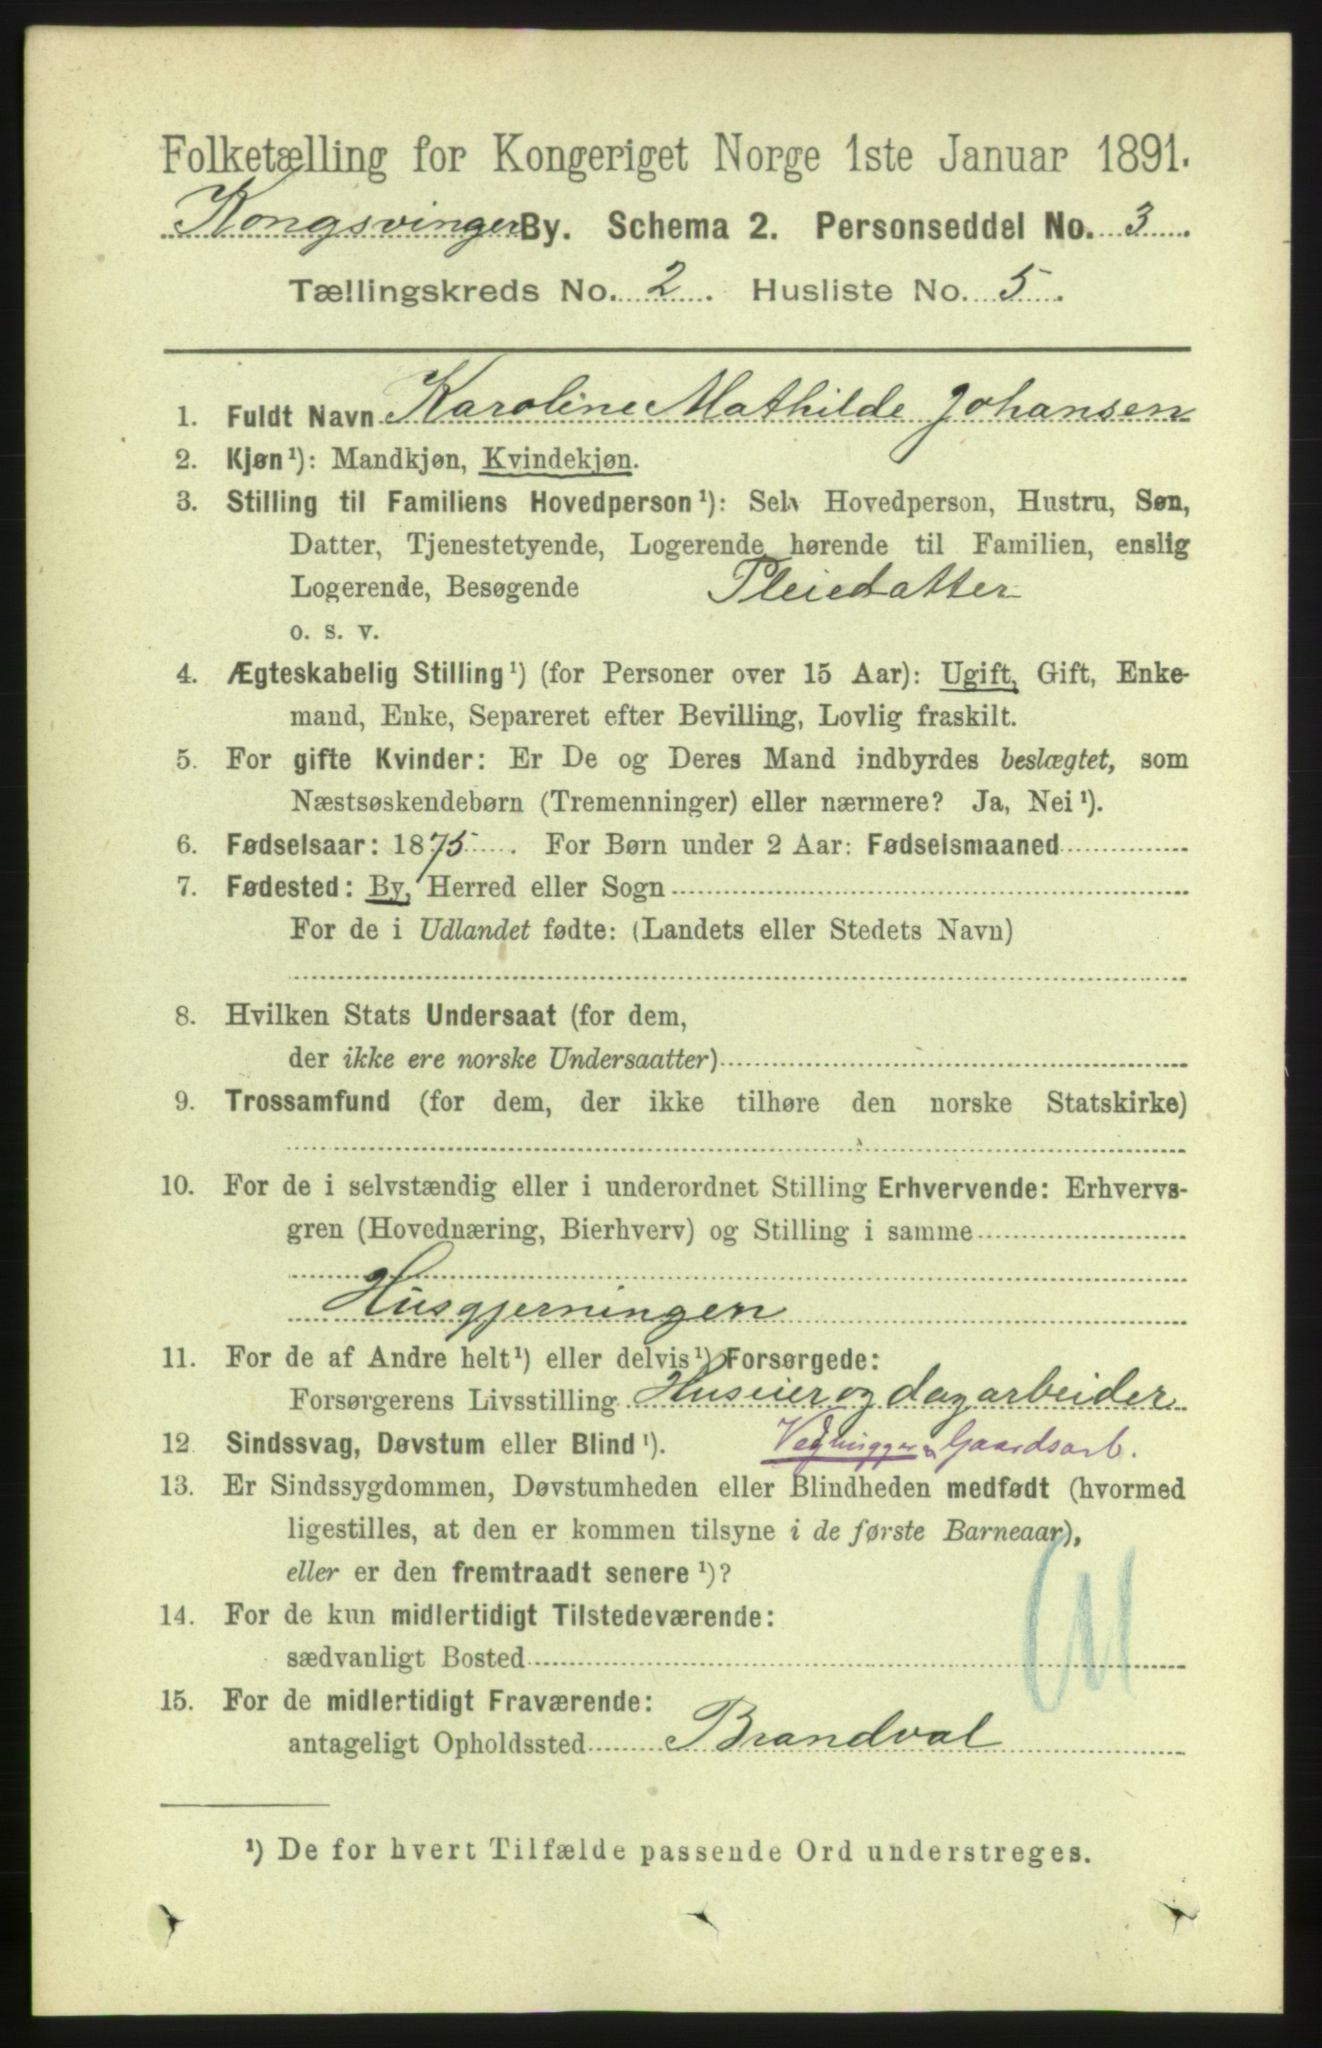 Folketælling for Kongeriget Norge 1ste Januar 1891.
Kongsvinger By. Schema 2. Personseddel No. 3.
Tællingskreds No. 2. Husliste No. 5.
1. Fuldt Navn Karoline Mathilde Johansen
2. Kjøn¹): Mandkjøn, Kvindekjøn.
3. Stilling til Familiens Hovedperson¹): Selv Hovedperson, Hustru, Søn,
Datter, Tjenestetyende, Logerende hørende til Familien, enslig
Logerende, Besøgende Pleiedatter
o. s. v.
4. Ægteskabelig Stilling¹) (for Personer over 15 Aar): Ugift, Gift, Enke-
mand, Enke, Separeret efter Bevilling, Lovlig fraskilt.
5. For gifte Kvinder: Er De og Deres Mand indbyrdes beslægtet, som
Næstsøskendebørn (Tremenninger) eller nærmere? Ja, Nei¹).
6. Fødselsaar: 1875. For Børn under 2 Aar: Fødselsmaaned
7. Fødested: By, Herred eller Sogn
For de i Udlandet fødte: (Landets eller Stedets Navn)
8. Hvilken Stats Undersaat (for dem,
der ikke ere norske Undersaatter)
9. Trossamfund (for dem, der ikke tilhøre den norske Statskirke)
10. For de i selvstændig eller i underordnet Stilling Erhvervende: Erhvervs-
gren (Hovednæring, Bierhverv) og Stilling i samme
Husgjerningen
11. For de af Andre helt¹) eller delvis¹) Forsørgede:
Forsørgerens Livsstilling Huseier og dagarbeider
12 Sindssvag, Døvstum eller Blind¹). Vedhugger & Gaardsarb.
13. Er Sindssygdommen, Døvstumheden eller Blindheden medfødt (hvormed
ligestilles, at den er kommen tilsyne i de første Barneaar),
eller er den fremtraadt senere¹)?
14. For de kun midlertidigt Tilstedeværende:
sædvanligt Bosted
15. For de midlertidigt Fraværende:
antageligt Opholdssted Brandval
¹) De for hvert Tilfælde passende Ord understreges.